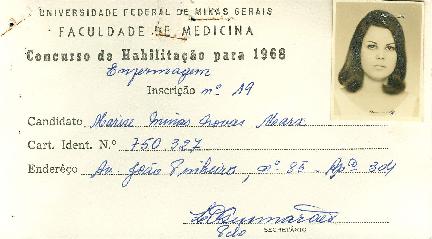 UNIVERSIDADE FEDERAL DE MINAS GERAIS
FACULDADE DE MEDICINA
Concurso de Habilitação para 1968
Enfermagem
Inscrição nº 19
Candidato Marise Minas Novas
Cart. Ident. N.º 750 327
Enderêço Av. João Pinheiro, nº 85 - Apº 304
Guimarães
SECRETÁRIO